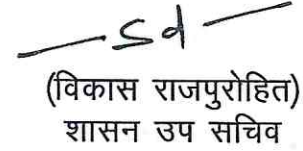 — Sd —
(विकास राजपुरोहित)
शासन उप सचिव